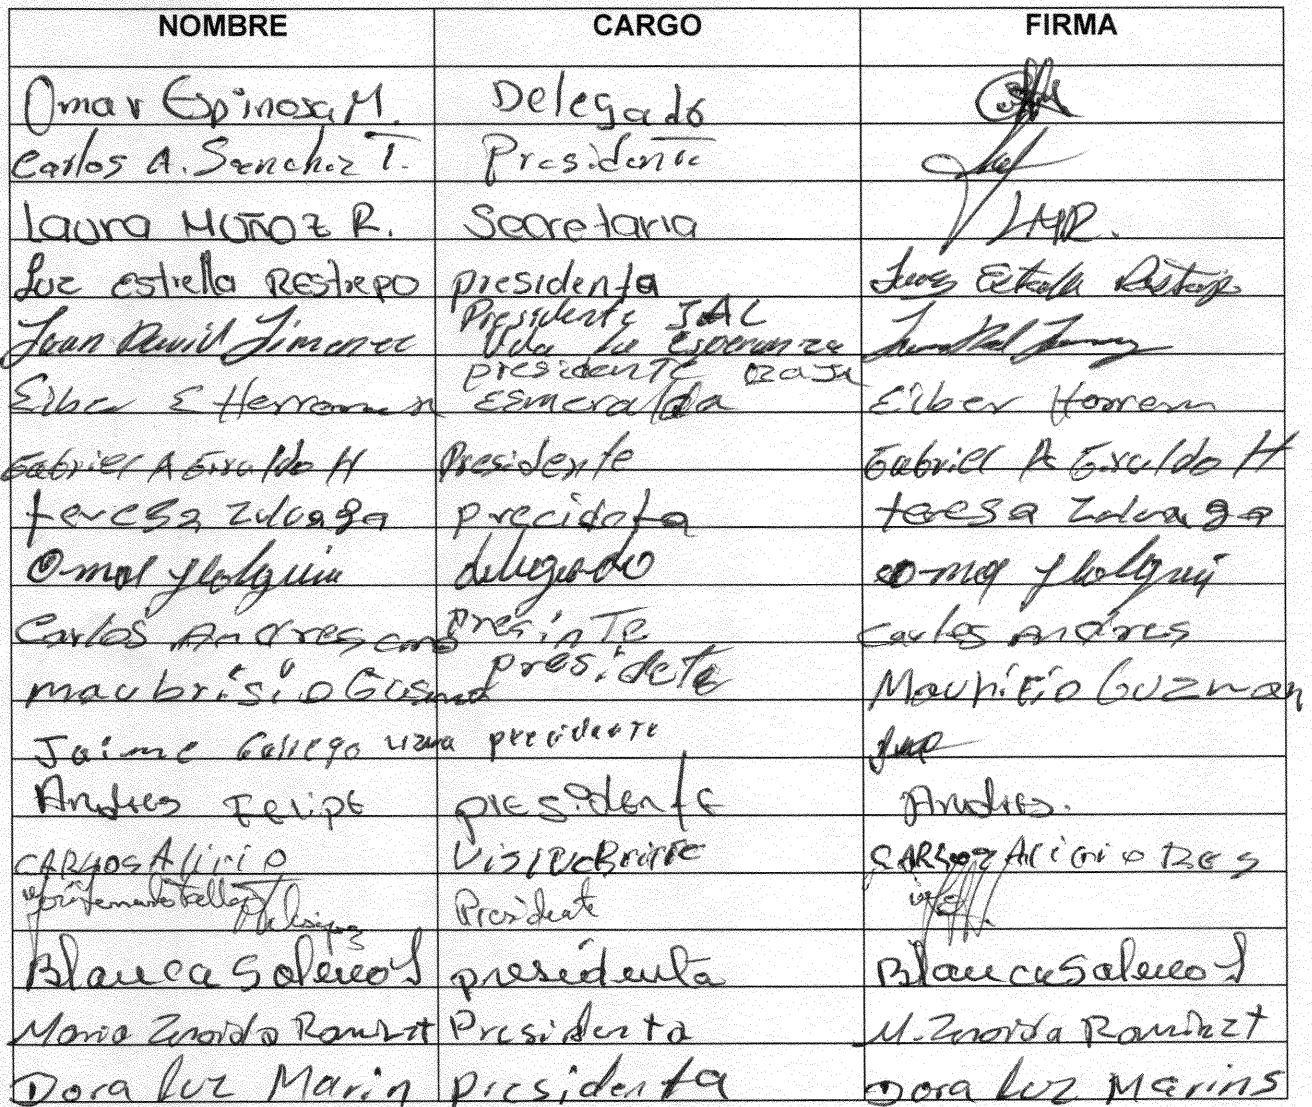 NOMBRE CARGO FIRMA
Omar Espinosa M. Delegado
Carlos A. Sanchez T. Presidente
Laura MUÑOZ R. Secretaria LMR.
Luz estrella REStrepo presidenta Luz Estrella Restrepo
Juan David Jimenez Presidente JAL
Vda la Esperanza
presidente
Eiber E Herrera esmeralda Eiber Herrera
Gabriel A Giraldo H Presidente Gabriel A Giraldo H
teresa Zuluaga precidota teresa Zuluaga
Omar Holguin delegado omar Holguin
Carlos Andres presinTe Carlos Andres
maubrisio Gusman presidete Mauricio Guzman
Jaime Gallego precidente
Andres Felipe presidente Andres.
CARlos Alirio CARlos Alirio
Presidente
Blanca Salazar presidenta Blanca Salazar
Maria Zenoida Ramirez Presidenta M. Zenoida Ramirez
Dora luz Marin presidenta Dora luz Marins